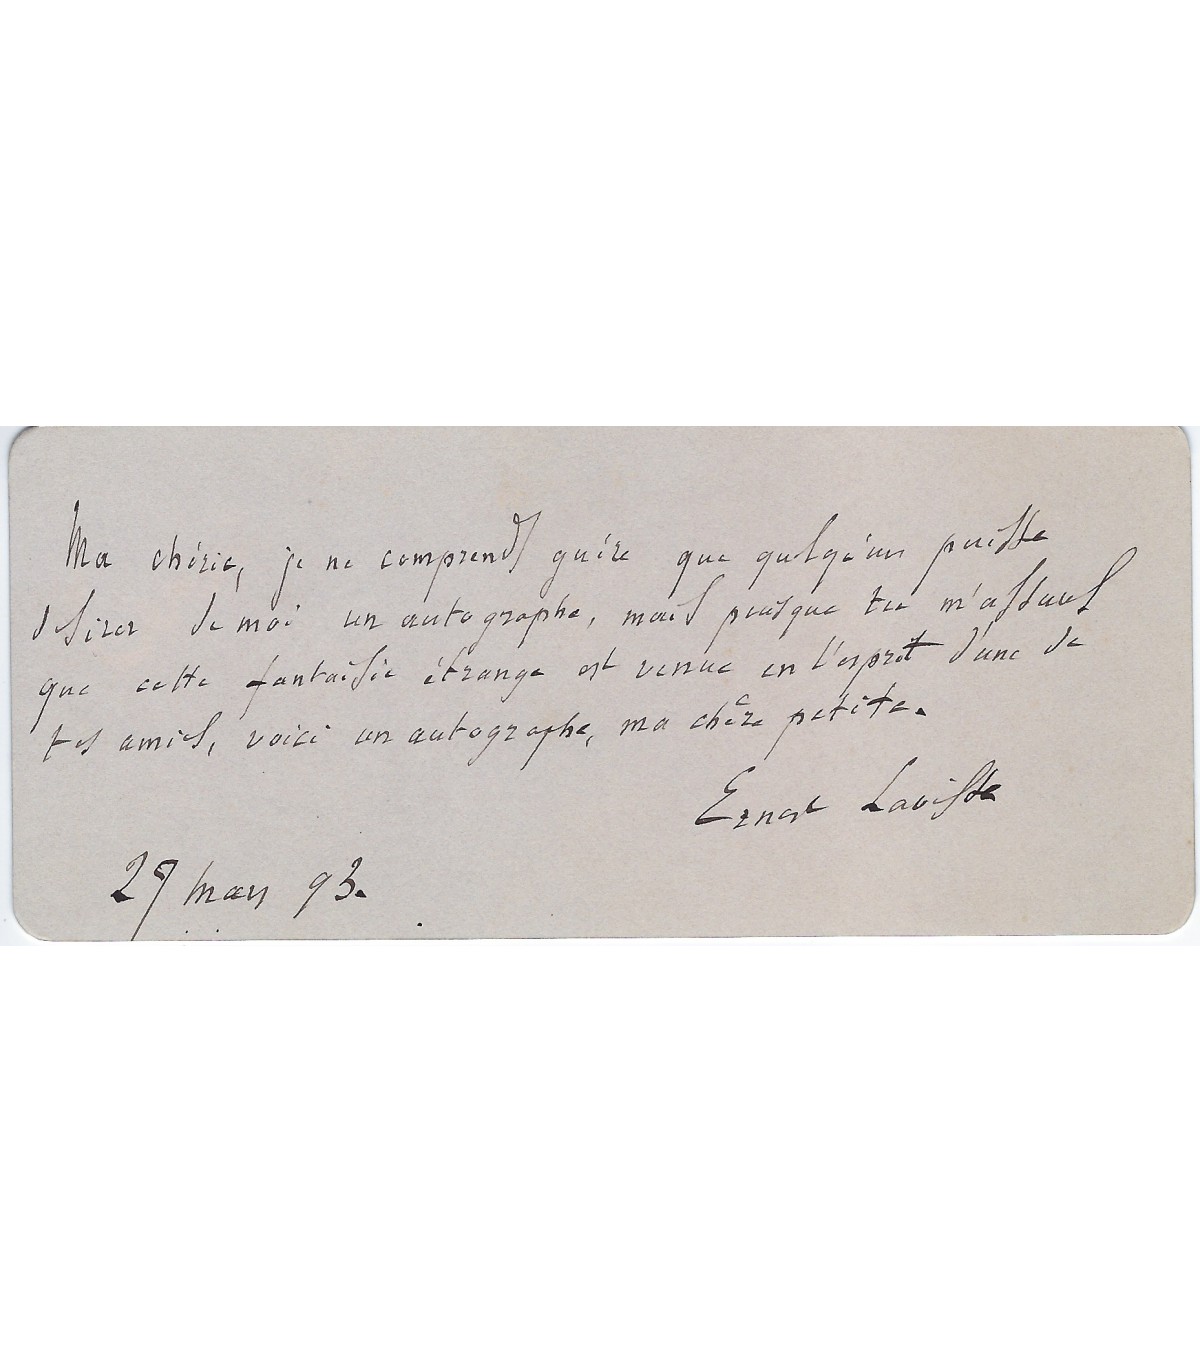 Ma chérie, je ne comprends guère que quelqu'un puisse
desirer de moi un autographe, mais puisque tu m'assures
que cette fantaisie étrange est venue en l'esprit d'une de
tes amies, voici un autographe, ma chère petite.
Ernest Lavisse
27 mars 93.